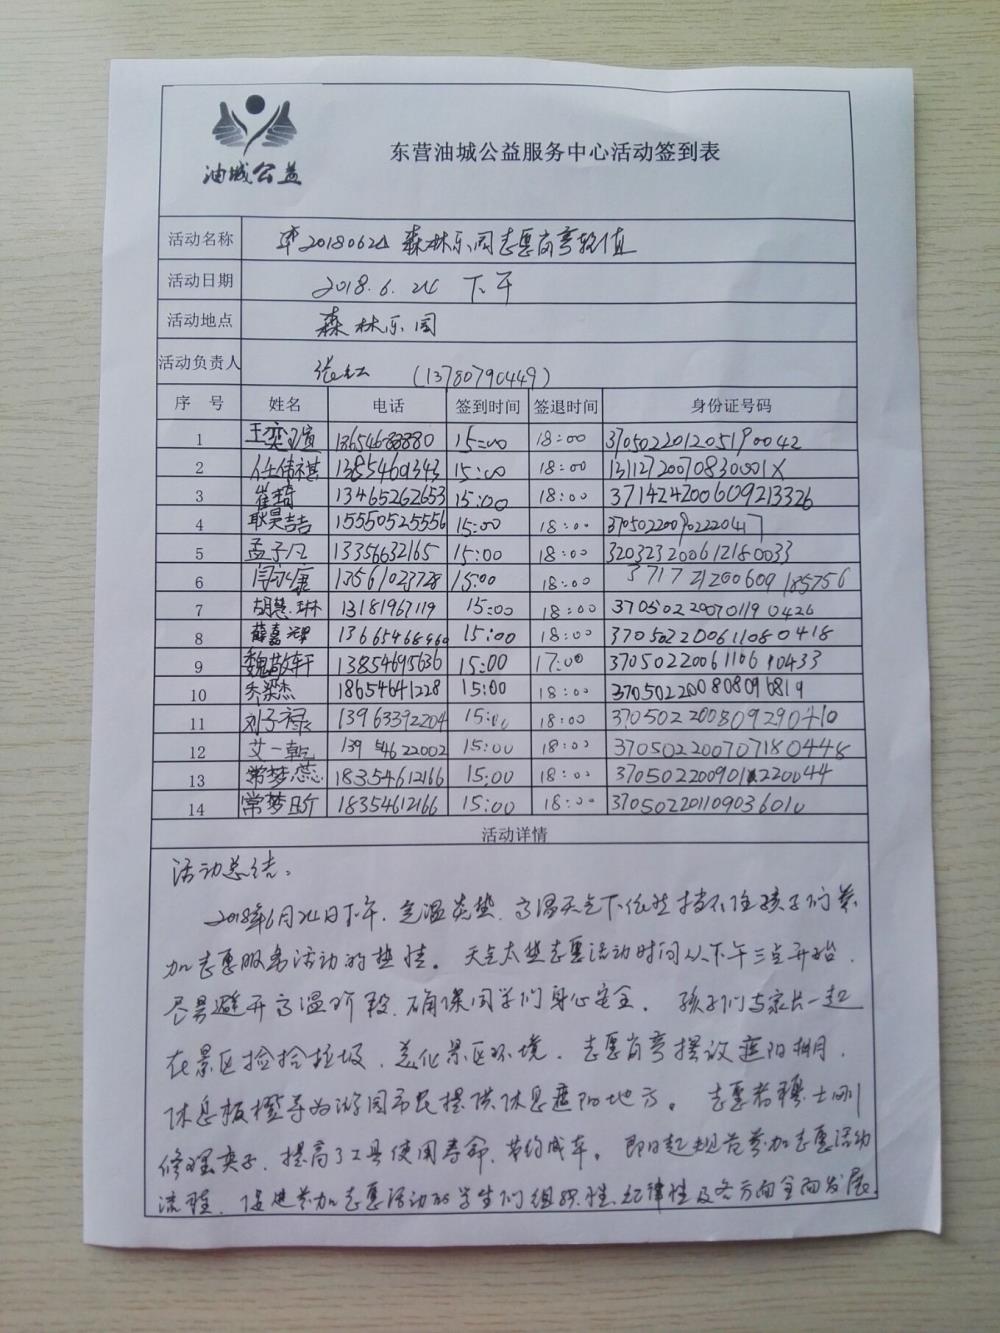 油城公益
东营油城公益服务中心活动签到表
活动名称 20180624 森林乐园志愿岗亭执值
活动日期 2018.6.24 下午
活动地点 森林乐园
活动负责人 (13780790449)
序 号 姓名 电话 签到时间 签退时间 身份证号码
1 15:00 18:00 370502201205190042
2 任伟祺 15:00 18:00 13112720070830001X
3 崔琦 13465262653 15:00 18:00 371424200609213326
4 耿昊吉吉 15550525556 15:00 18:00 370502200902220417
5 孟子凡 13356632165 15:00 18:00 320323200612180033
6 闫永康 13561023728 15:00 18:00 371721200609185756
7 胡慧琳 13181967119 15:00 18:00 370502200701190426
8 薛嘉 15:00 18:00 370502200611080418
9 魏敬轩 13854695636 15:00 17:00 3705022006110610433
10 乔梁杰 18654641228 15:00 18:00 370502200808096819
11 刘子禄 13963392204 15:00 18:00 370502200809290410
12 艾一乾 13954622002 15:00 18:00 370502200707180448
13 常梦蕊 18354612166 15:00 18:00 370502200901220044
14 常梦 18354612166 15:00 18:00 370502201109036010
活动详情
活动总结：
2018年6月24日下午，气温炎热，高温天气下依然挡不住孩子们参
加志愿服务活动的热情。天气太热志愿活动时间从下午三点开始，
尽量避开高温阶段，确保同学们身心安全。孩子们与家长一起
在景区捡拾垃圾，美化景区环境，志愿岗亭摆放遮阳棚，
休息板凳等为游园市民提供休息遮阳地方。志愿者穆士刚
修理夹子，提高了工具使用寿命，节约成本。即日起规范参加志愿活动
流程，促进参加志愿活动的学生们组织性，纪律性及各方面全面发展